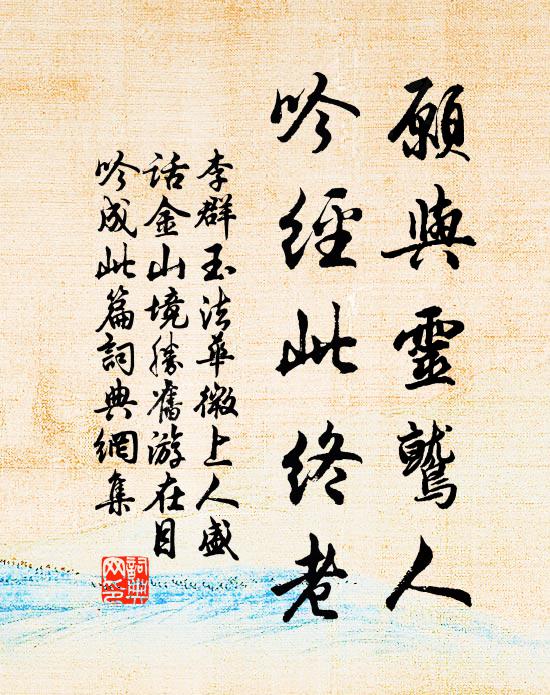 願與靈鷲人
吟經此終老
李群玉法華微上人盛
話金山境勝舊游在目
吟成此篇詞典網集
詞典
网之